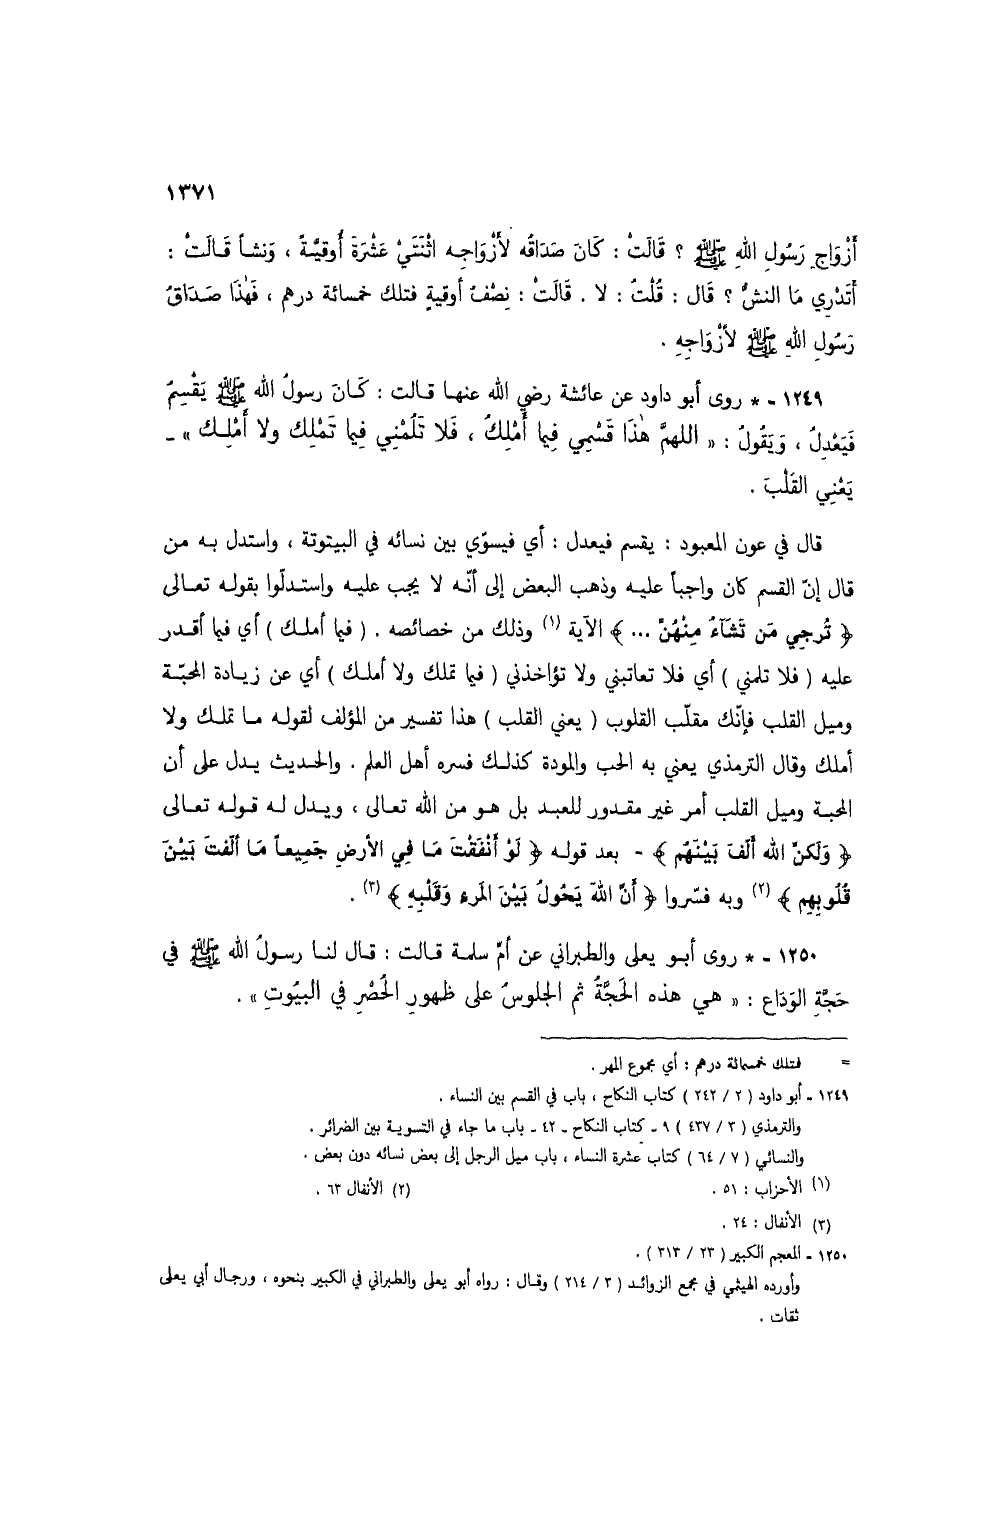 ١٣٧١
أَزْوَاجِ رَسُولِ اللهِ ﷺ ؟ قَالَتْ : كَانَ صَدَاقُه لأَزْوَاجِـه اثْنَتَيْ عَشْرَةَ أُوقيَّـةً ، وَنشاً قَـالَتْ :
أَتَدْرِي مَا النشُّ ؟ قَال : قُلْتُ : لا . قَالَتْ : نِصْفُ أوقيةٍ فتلك خمسائة درهم ، فَهٰذَا صَـدَاقُ
رَسُولِ اللهِ ﷺ لأَزْوَاجِهِ .
١٢٤٩ - * روى أبو داود عن عائشة رضي الله عنهـا قـالت : كَـانَ رسولُ الله ﷺ يَقْسِمُ
فَيَعْدِلُ ، وَيَقُولُ : « اللهمَّ هٰذَا قَسْمِي فِيما أَمْلِكُ ، فَلا تَلُمْنِي فِيما تَمْلِكُ ولا أَمْلِـك » -
يَعْنِي القَلْبَ .
قال في عون المعبود : يقسم فيعدل : أي فيسوّي بين نسائه في البيتوتة ، واستدل بـه مـن
قال إنّ القسم كان واجباً عليـه وذهب البعض إلى أنّـه لا يجب عليـه واستـدلّوا بقولـه تعـالى
﴿ تُرجِي مَن تَشَآءُ مِنْهُنَّ ... ﴾ الآية (١) وذلك من خصائصه . ( فيما أملـك ) أي فيما أقـدر
عليه ( فلا تلمني ) أي فلا تعاتبني ولا تؤاخذني ( فيما تملك ولا أملـك ) أي عن زيـادة المحبّـة
وميل القلب فإنّك مقلّب القلوب ( يعني القلب ) هذا تفسير من المؤلف لقولـه مـا تملـك ولا
أملك وقال الترمذي يعني به الحب والمودة كذلـك فسره أهل العلم . والحـديث يـدل على أن
المحبـة وميل القلب أمر غير مقـدور للعبـد بل هـو من الله تعـالى ، ويـدل لـه قـولـه تعـالى
﴿ وَلَكنَّ الله أَلَّفَ بَيْنَهُم ﴾ - بعد قولـه ﴿ لَوْ أَنْفَقْتَ مَا فِي الأرضِ جَمِيعاً مَا أَلّفتَ بَيْنَ
قُلُوبِهِم ﴾ (٢) وبه فسّروا ﴿ أَنَّ اللهَ يَحُولُ بَيْنَ المَرءِ وَقَلْبِهِ ﴾ (٣) .
١٢٥٠ - * روى أبـو يعلى والطبراني عن أمّ سلمة قـالت : قـال لنـا رسـولُ الله ﷺ في
حَجَّةِ الوَدَاعِ : « هـي هذه الحَجَّةُ ثم الجلوسُ على ظهورِ الحُصْرِ في البيُوتِ » .
= فتلك خمسائة درهم : أي مجموع المهر .
١٢٤٩ - أبو داود ( ٢ / ٢٤٢ ) كتاب النكاح ، باب في القسم بين النساء .
والترمذي ( ٣ / ٤٣٧ ) ٩ - كتاب النكاح - ٤٢ - باب ما جاء في التسوية بين الضرائر .
والنسائي ( ٧ / ٦٤ ) كتاب عشرة النساء ، باب ميل الرجل إلى بعض نسائه دون بعض .
(١) الأحزاب : ٥١ . (٢) الأنفال ٦٣ .
(٣) الأنفال : ٢٤ .
١٢٥٠ - المعجم الكبير ( ٢٣ / ٣١٣ ) .
وأورده الهيثمي في مجمع الزوائـد ( ٣ / ٢١٤ ) وقـال : رواه أبو يعلى والطبراني في الكبير بنحوه ، ورجـال أبي يعلى
ثقات .